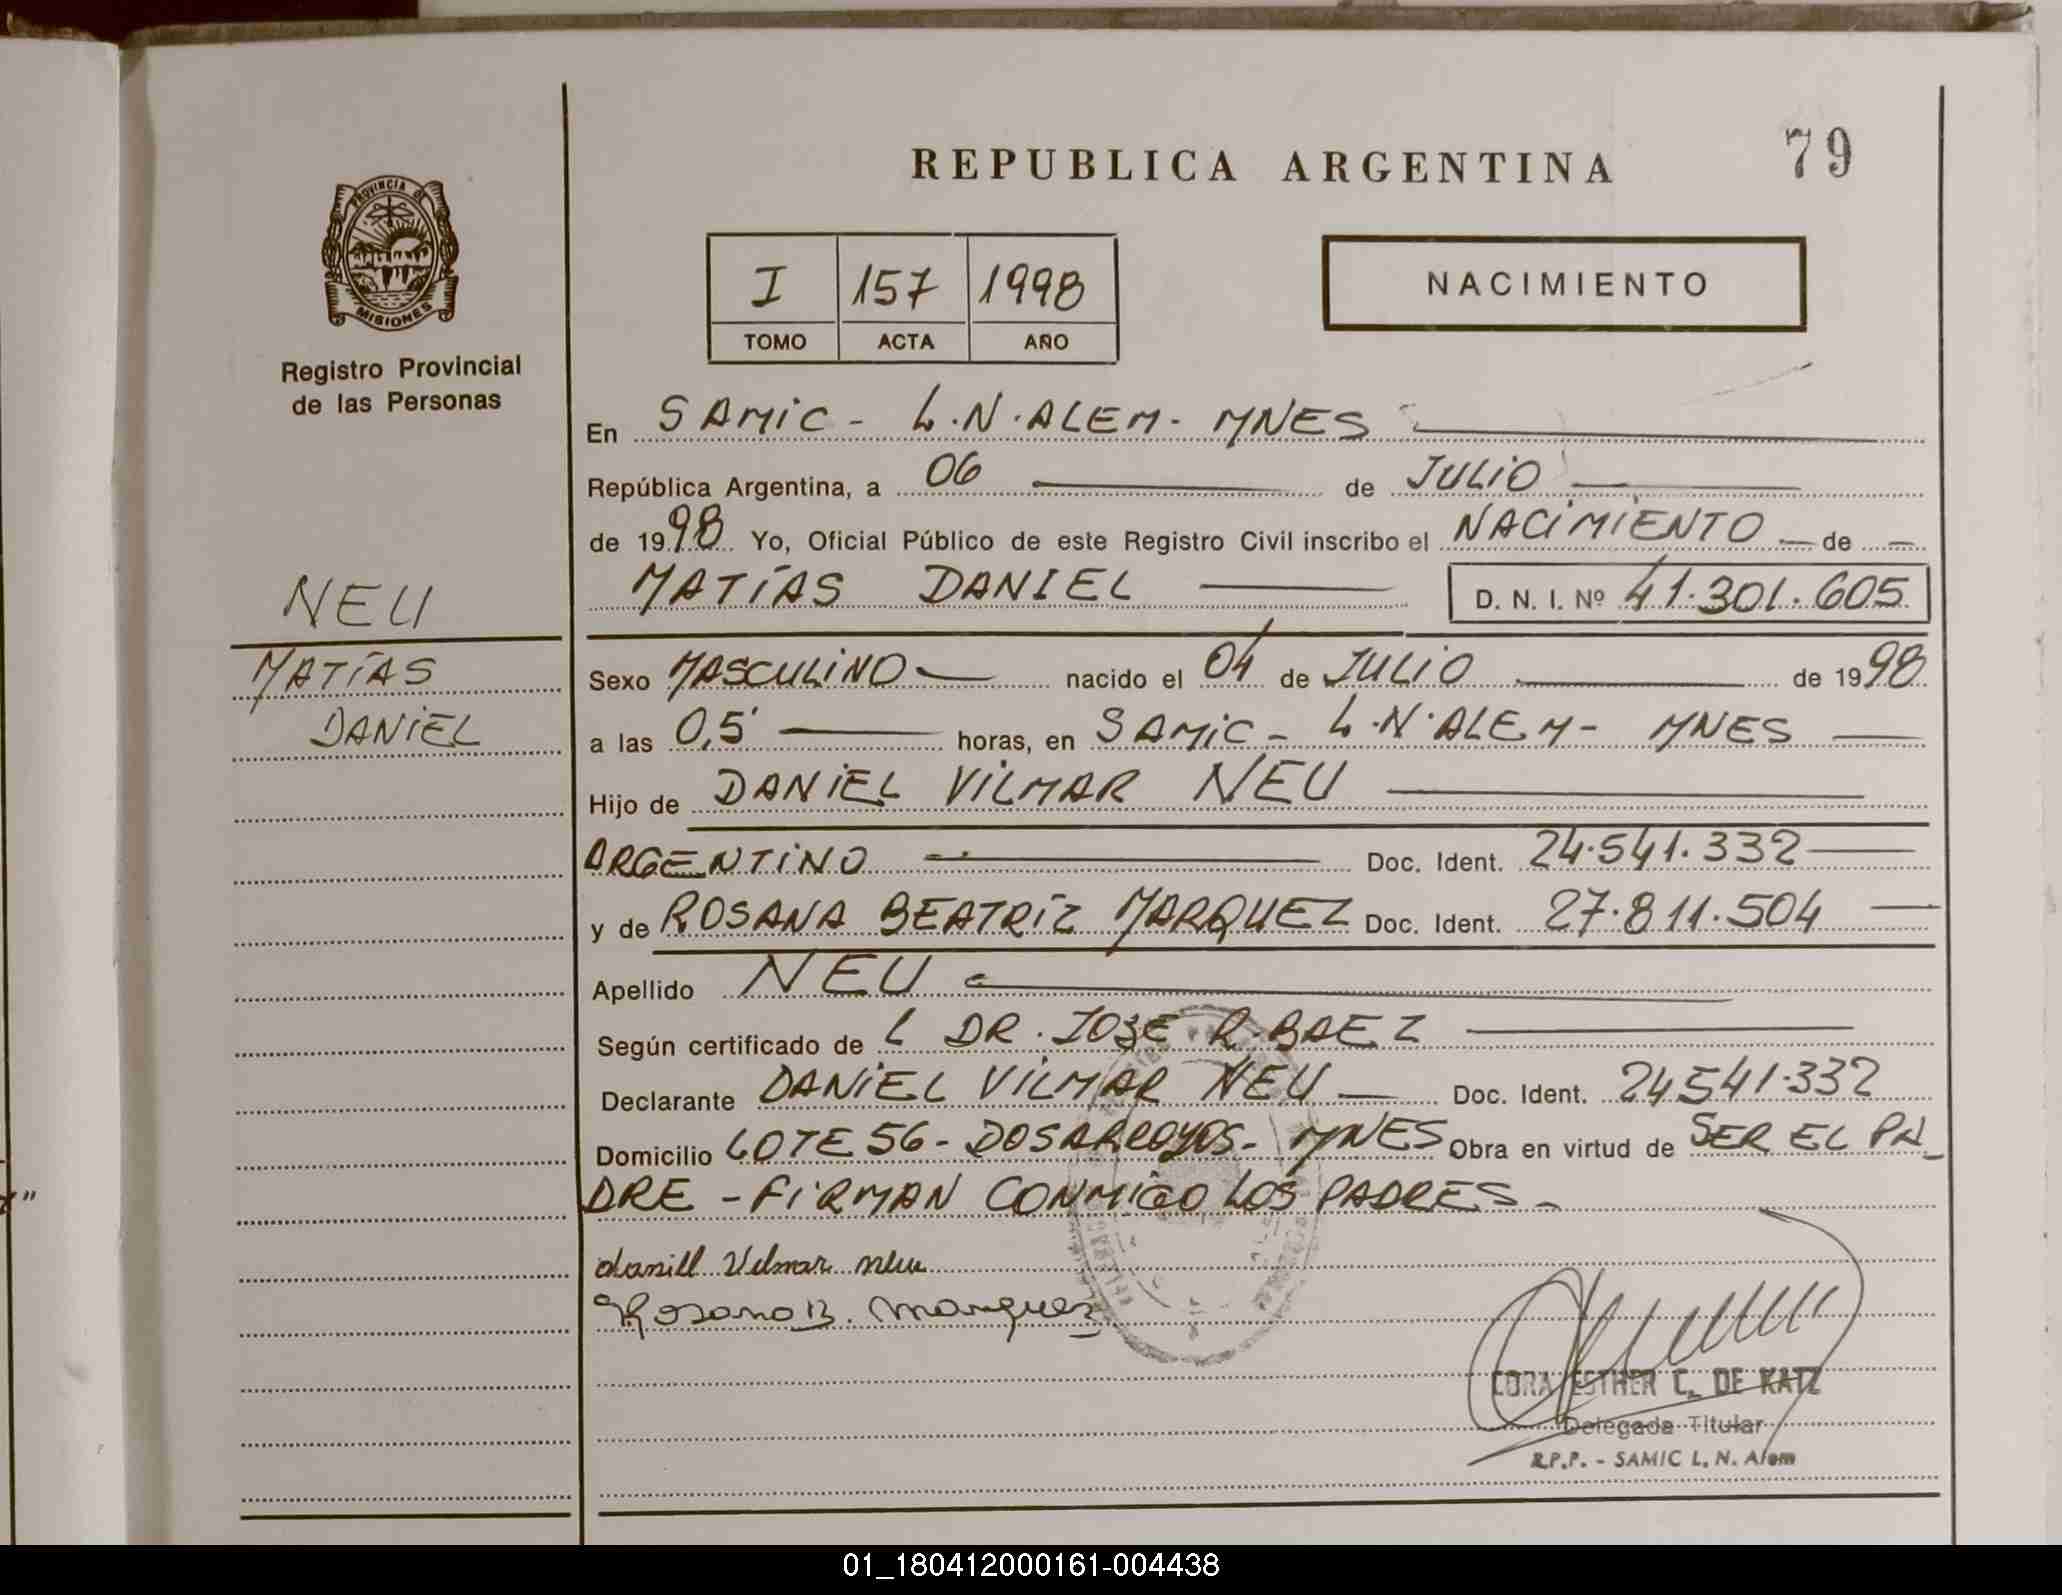 REPUBLICA ARGENTINA
79
PROVINCIA DE
MISIONES
Registro Provincial
de las Personas
I 157 1998
TOMO ACTA AÑO
NACIMIENTO
En SAMIC - L.N. ALEM - MNES
República Argentina, a 06 de JULIO
de 1998 Yo, Oficial Público de este Registro Civil inscribo el NACIMIENTO de
MATÍAS DANIEL D. N. I. Nº 41.301.605
NEU
MATÍAS
DANIEL
Sexo MASCULINO nacido el 04 de JULIO de 1998
a las 0,5' horas, en SAMIC - L.N. ALEM - MNES
Hijo de DANIEL VILMAR NEU
ARGENTINO Doc. Ident. 24.541.332
y de ROSANA BEATRÍZ MARQUEZ Doc. Ident. 27.811.504
Apellido NEU
Según certificado de L DR. JOSE R. BAEZ
Declarante DANIEL VILMAR NEU Doc. Ident. 24541.332
Domicilio LOTE 56 - DOSARROYOS - MNES Obra en virtud de SER EL PA_
DRE - FIRMAN CONMIGO LOS PADRES -
daniel Vilmar neu
Rosana B. Marquez
CORA ESTHER C. DE KATZ
Delegada Titular
R.P.P. - SAMIC L. N. Alem
01_180412000161-004438